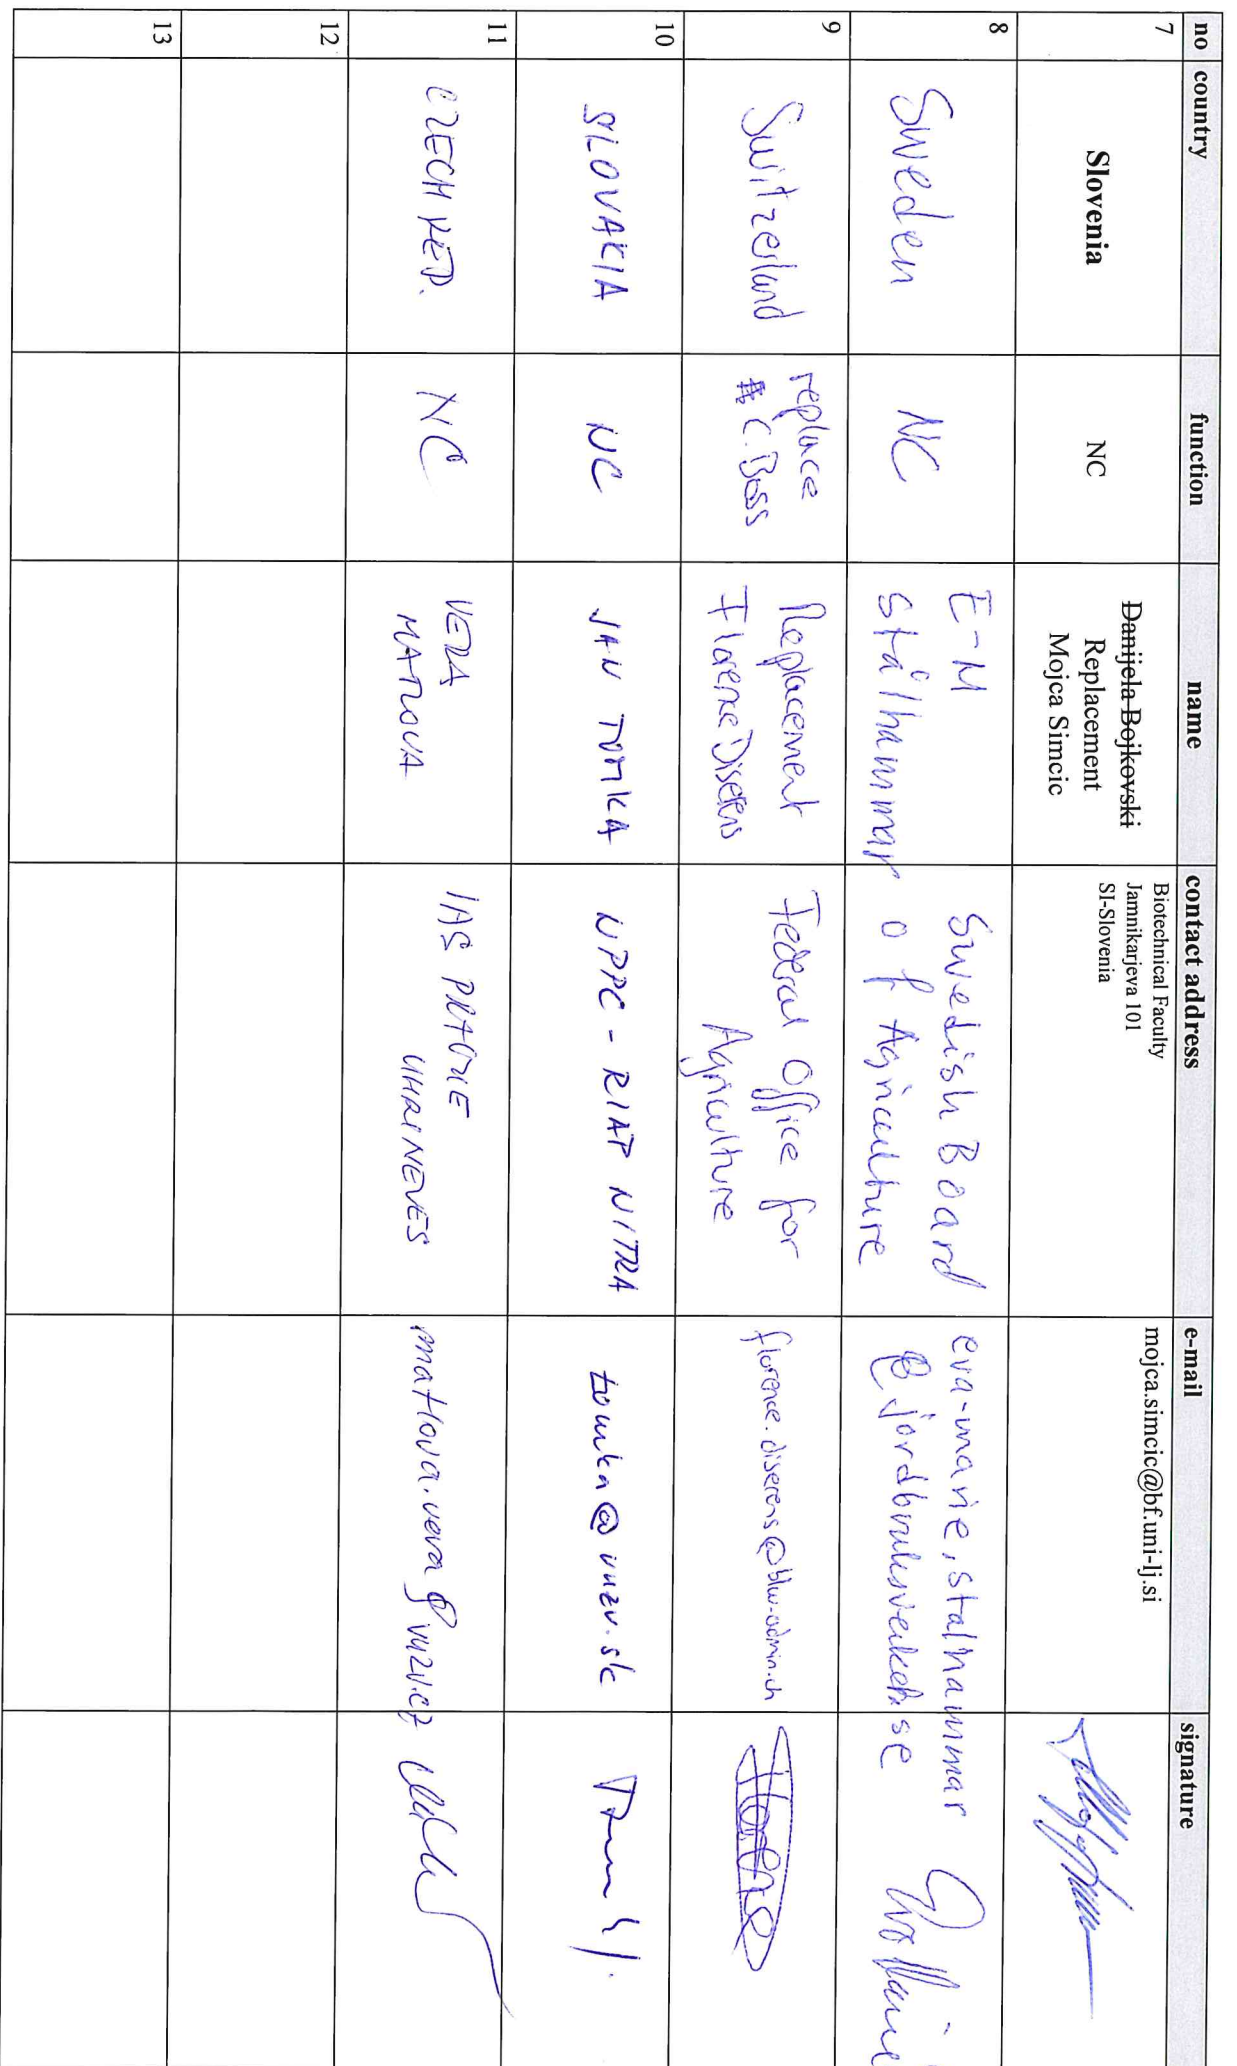 no country function name contact address e-mail signature
7 Slovenia NC Danijela Bojkovski
Replacement
Mojca Simcic
Biotechnical Faculty
Jamnikarjeva 101
SI-Slovenia
mojca.simcic@bf.uni-lj.si
8 Sweden NC E-M
Stålhammar
Swedish Board
of Agriculture
eva-marie.stalhammar
@jordbruksverket.se
9 Switzerland replace
C. Boss
Replacement
Florence Diserens
Federal Office for
Agriculture
florence.diserens@blw.admin.ch
Florence
10 SLOVAKIA NC JAN TOMKA NPPC - RIAP NITRA tomka@vuzv.sk
11 CZECH REP. NC VERA
MATLOVA
IAS PRAGUE
UHRINEVES
matlova.vera@vuzv.cz
12
13